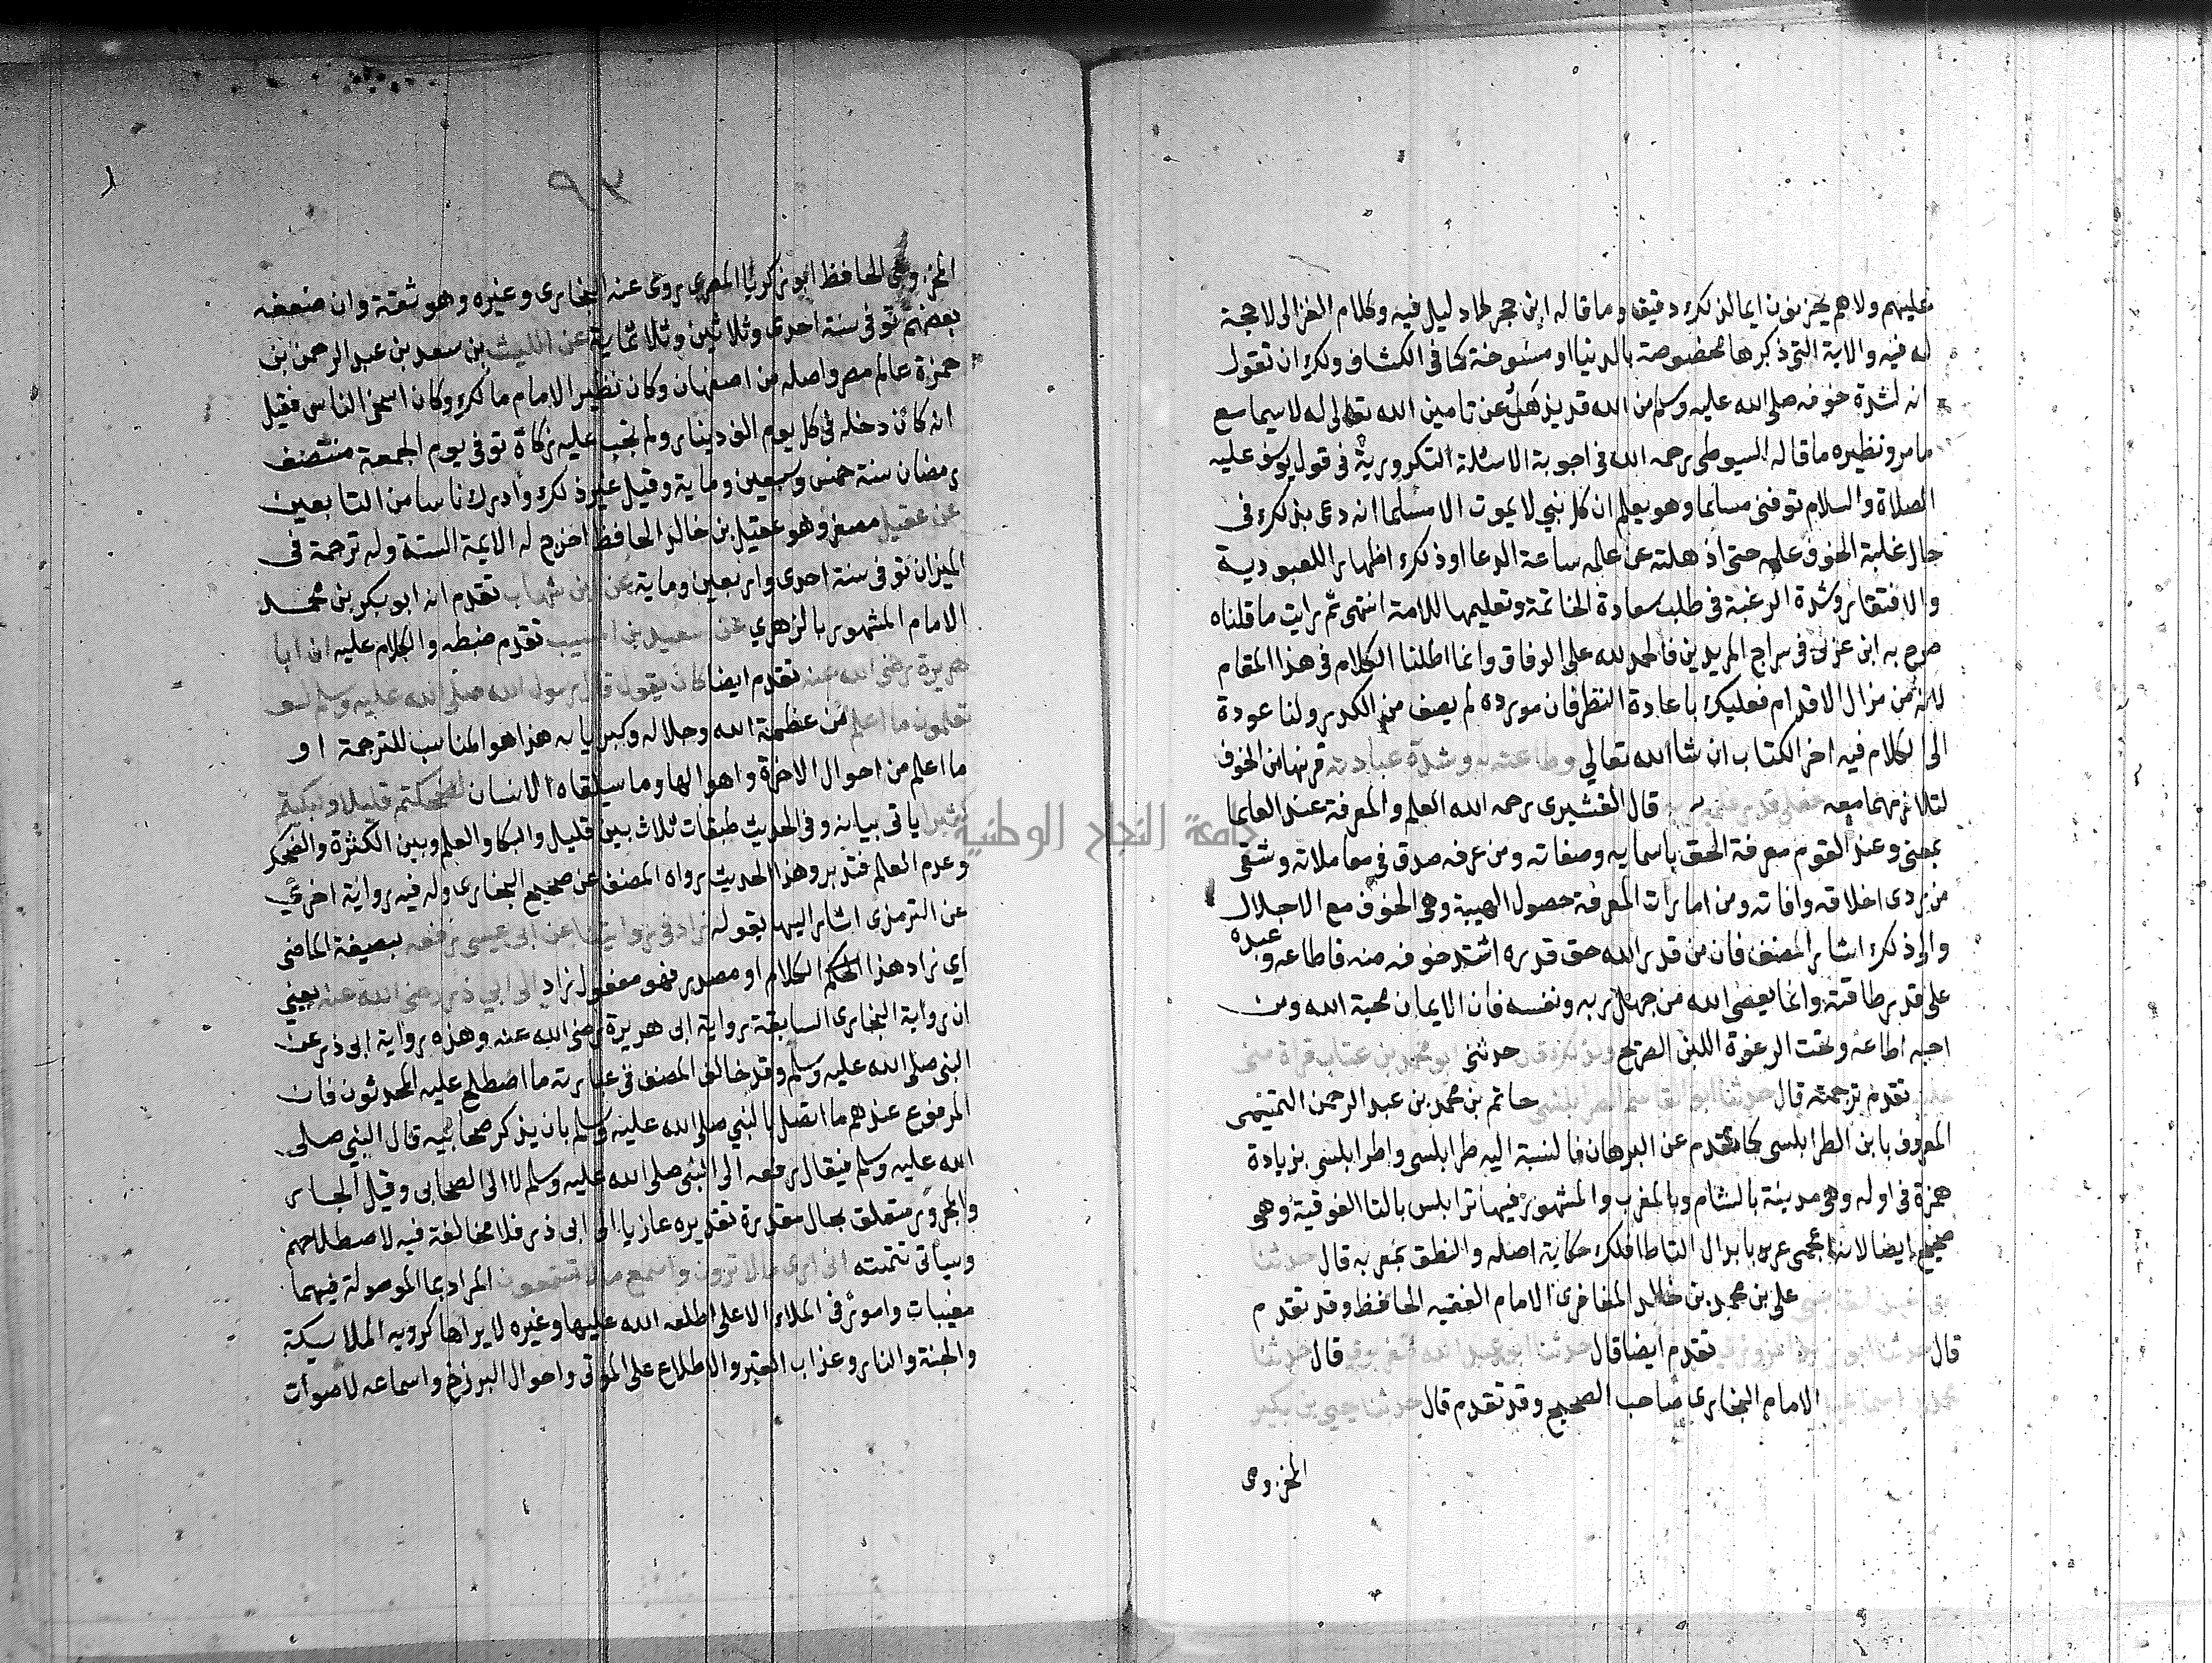 عليهم ولاهم يحزنون ايما لذلك دقيق وما قاله ابن حجر لا دليل فيه وكلام الغزالى لا حجة
له فيه والاية التى ذكرها مخصوصة بالدنيا او منسوخة كما فى الكشاف ولك ان تقول
انه لشدة خوفه صلى الله عليه وسلم من الله قد يذهل عن تامين الله تعالى له لاسيما مع
مامر ونظيره ما قاله السيوطى رحمه الله فى اجوبة الاسئلة التكرورية فى قول يوسف عليه
الصلاة والسلام توفنى مسلما وهو يعلم ان كل نبي لا يموت الا مسلما انه دعى بذلك فى
حال غلبة الخوف عليه حتى اذهلته عن علمه ساعة الدعا او ذلك اظهارا للعبودية
والافتقار وشدة الرغبة فى طلب سعادة الخاتمة وتعليما للامة انتهى ثم رايت ما قلناه
صرح به ابن عربى فى سراج المريدين فالحمد لله على الوفاق وانما اطلنا الكلام فى هذا المقام
لانه من مزال الاقدام فعليك باعادة النظر فان مورده لم يصف من الكدر ولنا عودة
الى الكلام فيه اخر الكتاب ان شا الله تعالي وطاعته له وشدة عبادته قرنها بالخوف
لتلازمهما معه فعلى قدر علمه بربه قال القشيرى رحمه الله العلم والمعرفة عند العلما
بمعنى وعند القوم معرفة الحق باسمايه وصفاته ومن عرفه صدق فى معاملاته وتنقى
من ردى اخلاقه وافاته ومن امارات المعرفة حصول الهيبة وهى الخوف مع الاجلال
والى ذلك اشار المصنف فان من قدر الله حق قدره اشتد خوفه منه فاطاعه وعبده
على قدر طاقته وانما يعصى الله من جهل ربه ونفسه فان الايمان محبة الله ومن
احبه اطاعه وتحت الرغوة اللبن الصريح ولذلك قال حدثنى ابو محمد بن عتاب قراة منى
عليه تقدم ترجمته قال حدثنا ابو القاسم الطرابلسى حاتم بن محمد بن عبد الرحمن التميمى
المعروف بابن الطرابلسى كما تقدم عن البرهان فالنسبة اليه طرابلسى واطرابلسي بزيادة
همزة فى اوله وهى مدينة بالشام وبالمغرب والمشهور فيها ترابلس بالتا الفوقية وهى
صحيح ايضا لانه اعجمى عرب بابدال التا طا فلك حكاية اصله والنطق بمعربه قال حدثنا
على بن محمد بن خالد المغافرى الامام الفقيه الحافظ وقد تقدم
قال حدثنا ابو زيد المروزى تقدم ايضا قال حدثنا ابو عبد الله الفربرى قال حدثنا
محمد بن اسماعيل الامام البخارى صاحب الصحيح وقد تقدم قال حدثنا يحيى بن بكير
المخزومى
٩٣
المخزومى الحافظ ابو زكريا المصرى روى عنه البخارى وغيره وهو ثقة وان ضعفه
بعضهم توفى سنة احدى وثلاثين وثلاثماية عن الليث بن سعد بن عبد الرحمن بن
حمزة عالم مصر واصله من اصفهان وكان نظير الامام مالك وكان اسخى الناس فقيل
انه كان دخله فى كل يوم الف دينار ولم تجب عليه زكاة توفى يوم الجمعة منتصف
رمضان سنة خمس وسبعين وماية وقيل غير ذلك وادرك ناسا من التابعين
عن عقيل مصغر وهو عقيل بن خالد الحافظ اخرج له الايمة الستة وله ترجمة فى
الميزان توفى سنة احدى واربعين وماية عن ابن شهاب تقدم انه ابو بكر بن محمد
الامام المشهور بالزهري عن سعيد بن المسيب تقدم ضبطه والكلام عليه ان ابا
هريرة رضى الله عنه تقدم ايضا كان يقول قال رسول الله صلى الله عليه وسلم لو
تعلمون ما اعلم من عظمة الله وجلاله وكبريايه هذا هو المناسب للترجمة او
ما اعلم من احوال الاخرة واهوالها وما سيلقاه الانسان لضحكتم قليلا ولبكيتم
كثيرا ياتى بيانه وفى الحديث طبقات ثلاث بين قليل والبكا والعلم وبين الكثرة والضحك
وعدم العلم فتدبر وهذا الحديث رواه المصنف عن صحيح البخارى وله فيه رواية اخرى
عن الترمذى اشار اليها بقوله زاد فى روايتنا عن ابى عيسى رفعه بصيغة الماضى
اي زاد هذا الحكم الكلام او مصدر فهو مفعول زاد الى ابي ذر رضى الله عنه يعني
ان رواية البخارى السابقة برواية ابى هريرة رضى الله عنه وهذه رواية ابى ذر عن
النبى صلى الله عليه وسلم وقد خالف المصنف فى عبارته ما اصطلح عليه المحدثون فان
المرفوع عندهم ما اتصل بالنبي صلى الله عليه وسلم بان يذكر صحابيه قال النبي صلى
الله عليه وسلم فيقال رفعه الى النبى صلى الله عليه وسلم لا الى الصحابى وقيل الجار
والمجرور متعلق بحال مقدرة تقديره عازيا الى ابى ذر فلا مخالفة فيه لاصطلاحهم
وسياتى تتمته انى ارى مالا ترون واسمع مالا تسمعون المراد بما الموصولة فيهما
مغيبات وامور فى الملاء الاعلى اطلعه الله عليها وغيره لا يراها كروية الملايكة
والجنة والنار وعذاب القبر والاطلاع على الموتى واحوال البرزخ واسماعه لاصوات
جامعة النجاح الوطنية